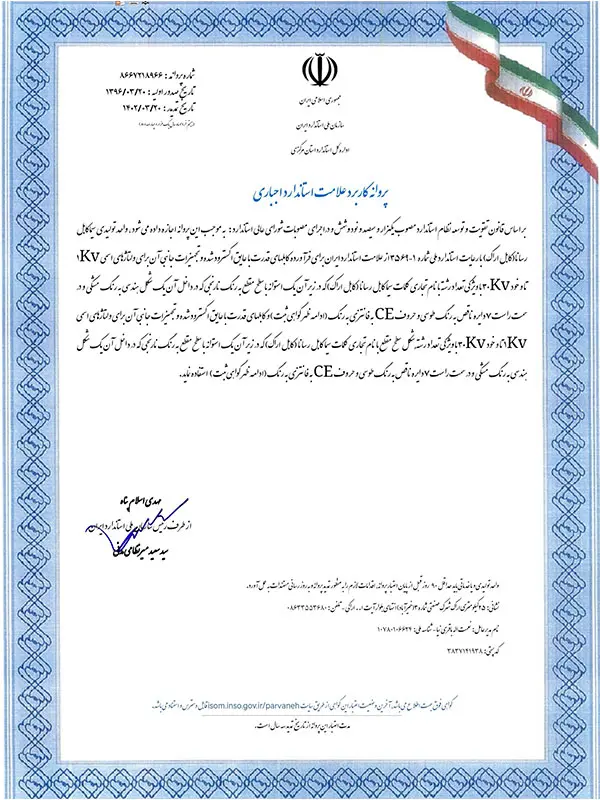 شماره پروانه: ۸۶۶۷۲۱۸۹۶۶
تاریخ صدور اولیه: ۱۳۹۶/۰۳/۲۰
تاریخ تمدید: ۱۴۰۲/۰۳/۲۰
جمهوری اسلامی ایران
سازمان ملی استاندارد ایران
اداره کل استاندارد استان مرکزی
پروانه کاربرد علامت استاندارد اجباری
بر اساس قانون تقویت و توسعه نظام استاندارد مصوب یکهزار و سیصد و نود و شش و در اجرای مصوبات شورای عالی استاندارد: به موجب این پروانه اجازه داده می‌شود، واحد تولیدی سیما کابل
رسانا (کابل اراک) با رعایت استاندارد ملی شماره ۳۵۶۹-۱ از علامت استاندارد ایران برای فرآورده کابلهای قدرت با عایق اکسترود شده و تجهیزات جانبی آن برای ولتاژهای اسمی ۱Kv
تا و خود ۳۰Kv با ویژگی تعداد رشته با نام تجاری کلمات سیما کابل رسانا (کابل اراک) که در زیر آن یک استوانه با سطح مقطع به رنگ نارنجی که در داخل آن یک شکل هندسی به رنگ مشکی و در
سمت راست ۷ دایره ناقص به رنگ طوسی و حروف CE به فانتزی به رنگ (ادامه ظهر گواهی ثبت) و کابلهای قدرت با عایق اکسترود شده و تجهیزات جانبی آن برای ولتاژهای اسمی
۱Kv تا و خود ۳۰Kv با ویژگی تعداد رشته شکل سطح مقطع با نام تجاری کلمات سیما کابل رسانا (کابل اراک) که در زیر آن یک استوانه با سطح مقطع به رنگ نارنجی که در داخل آن یک شکل
هندسی به رنگ مشکی و در سمت راست ۷ دایره ناقص به رنگ طوسی و حروف CE به فانتزی به رنگ (ادامه ظهر گواهی ثبت) استفاده نماید.
مهدی اسلام پناه
از طرف رئیس سازمان ملی استاندارد ایران
سید سعید میرنظامی
واحد تولیدی و یا خدماتی باید حداقل ۹۰ روز قبل از پایان اعتبار پروانه، اقدامات لازم را به منظور تمدید پروانه و به روز رسانی مستندات به عمل آورد.
نشانی: ۵ کیلومتری اراک شهرک صنعتی شماره ۳ (خیرآباد) انتهای بلوار آیت ا.. اراکی، تلفن: ۰۸۶۳۳۵۵۳۶۸۰
نام مدیر عامل: نعمت اله باقری نیا، شناسه ملی: ۱۰۷۸۰۱۰۶۶۲۴
کد پستی: ۳۸۳۷۱۴۱۹۳۸
گواهی فوق جهت اطلاع می باشد. آخرین وضعیت اعتبار این گواهی از طریق سایت isom.inso.gov.ir/parvaneh قابل دسترس و استناد می باشد.
مدت اعتبار این پروانه از تاریخ تمدید سه سال است.